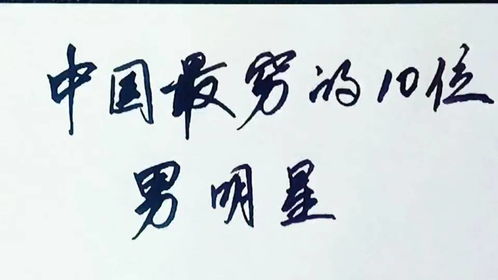 中国最穷的10位
男明星